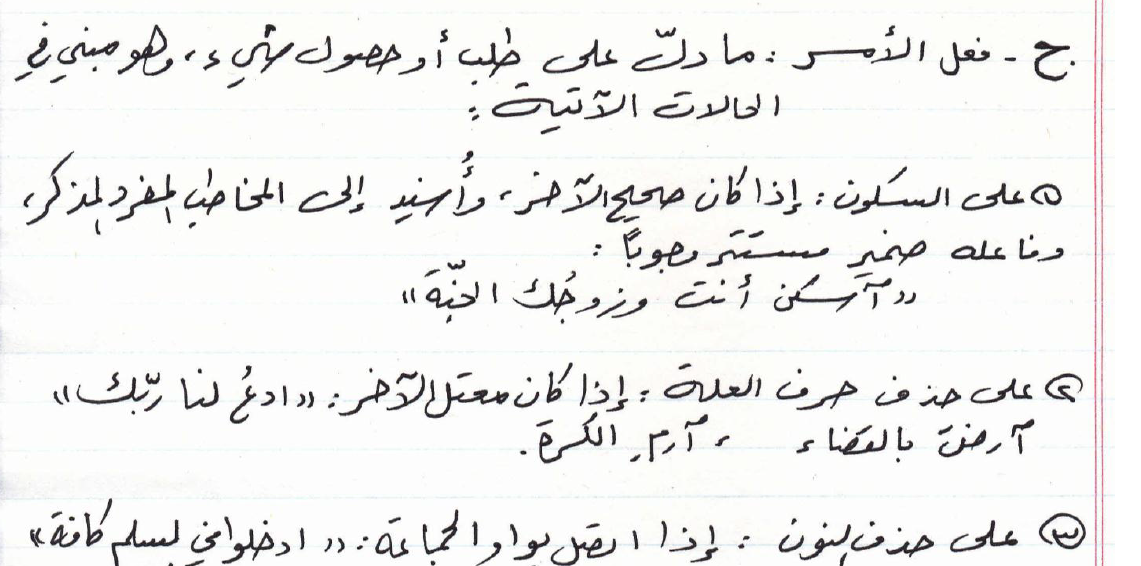 ج - فعل الأمر : ما دلّ على طلب أو حصول شيء ، وهو مبني في
الحالات الآتية :
① على السكون : إذا كان صحيح الآخر ، وأُسنِد إلى المخاطب المفرد المذكر ،
وفاعله ضمير مستتر وجوبًا :
« ٱسكن أنت وزوجُك الجنّةَ »
② على حذف حرف العلة : إذا كان معتل الآخر : « ادعُ لنا ربّك »
ٱرضَ بالقضاء ، ٱرمِ الكرةَ .
③ على حذف النون : إذا اتصل بواو الجماعة : « ادخلوا في السلم كافة »